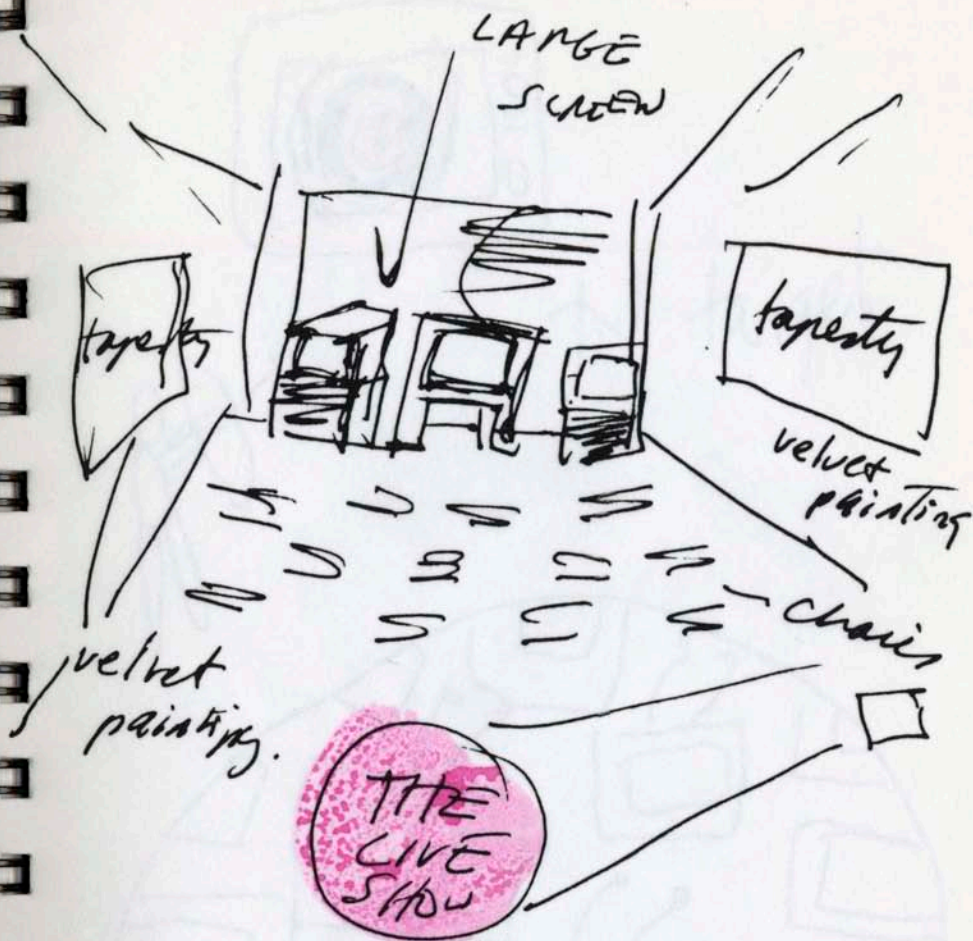 LARGE
SCREEN
tapesty
tapesty
velvet
painting
chairs
velvet
painting.
THE
LIVE
SHOW